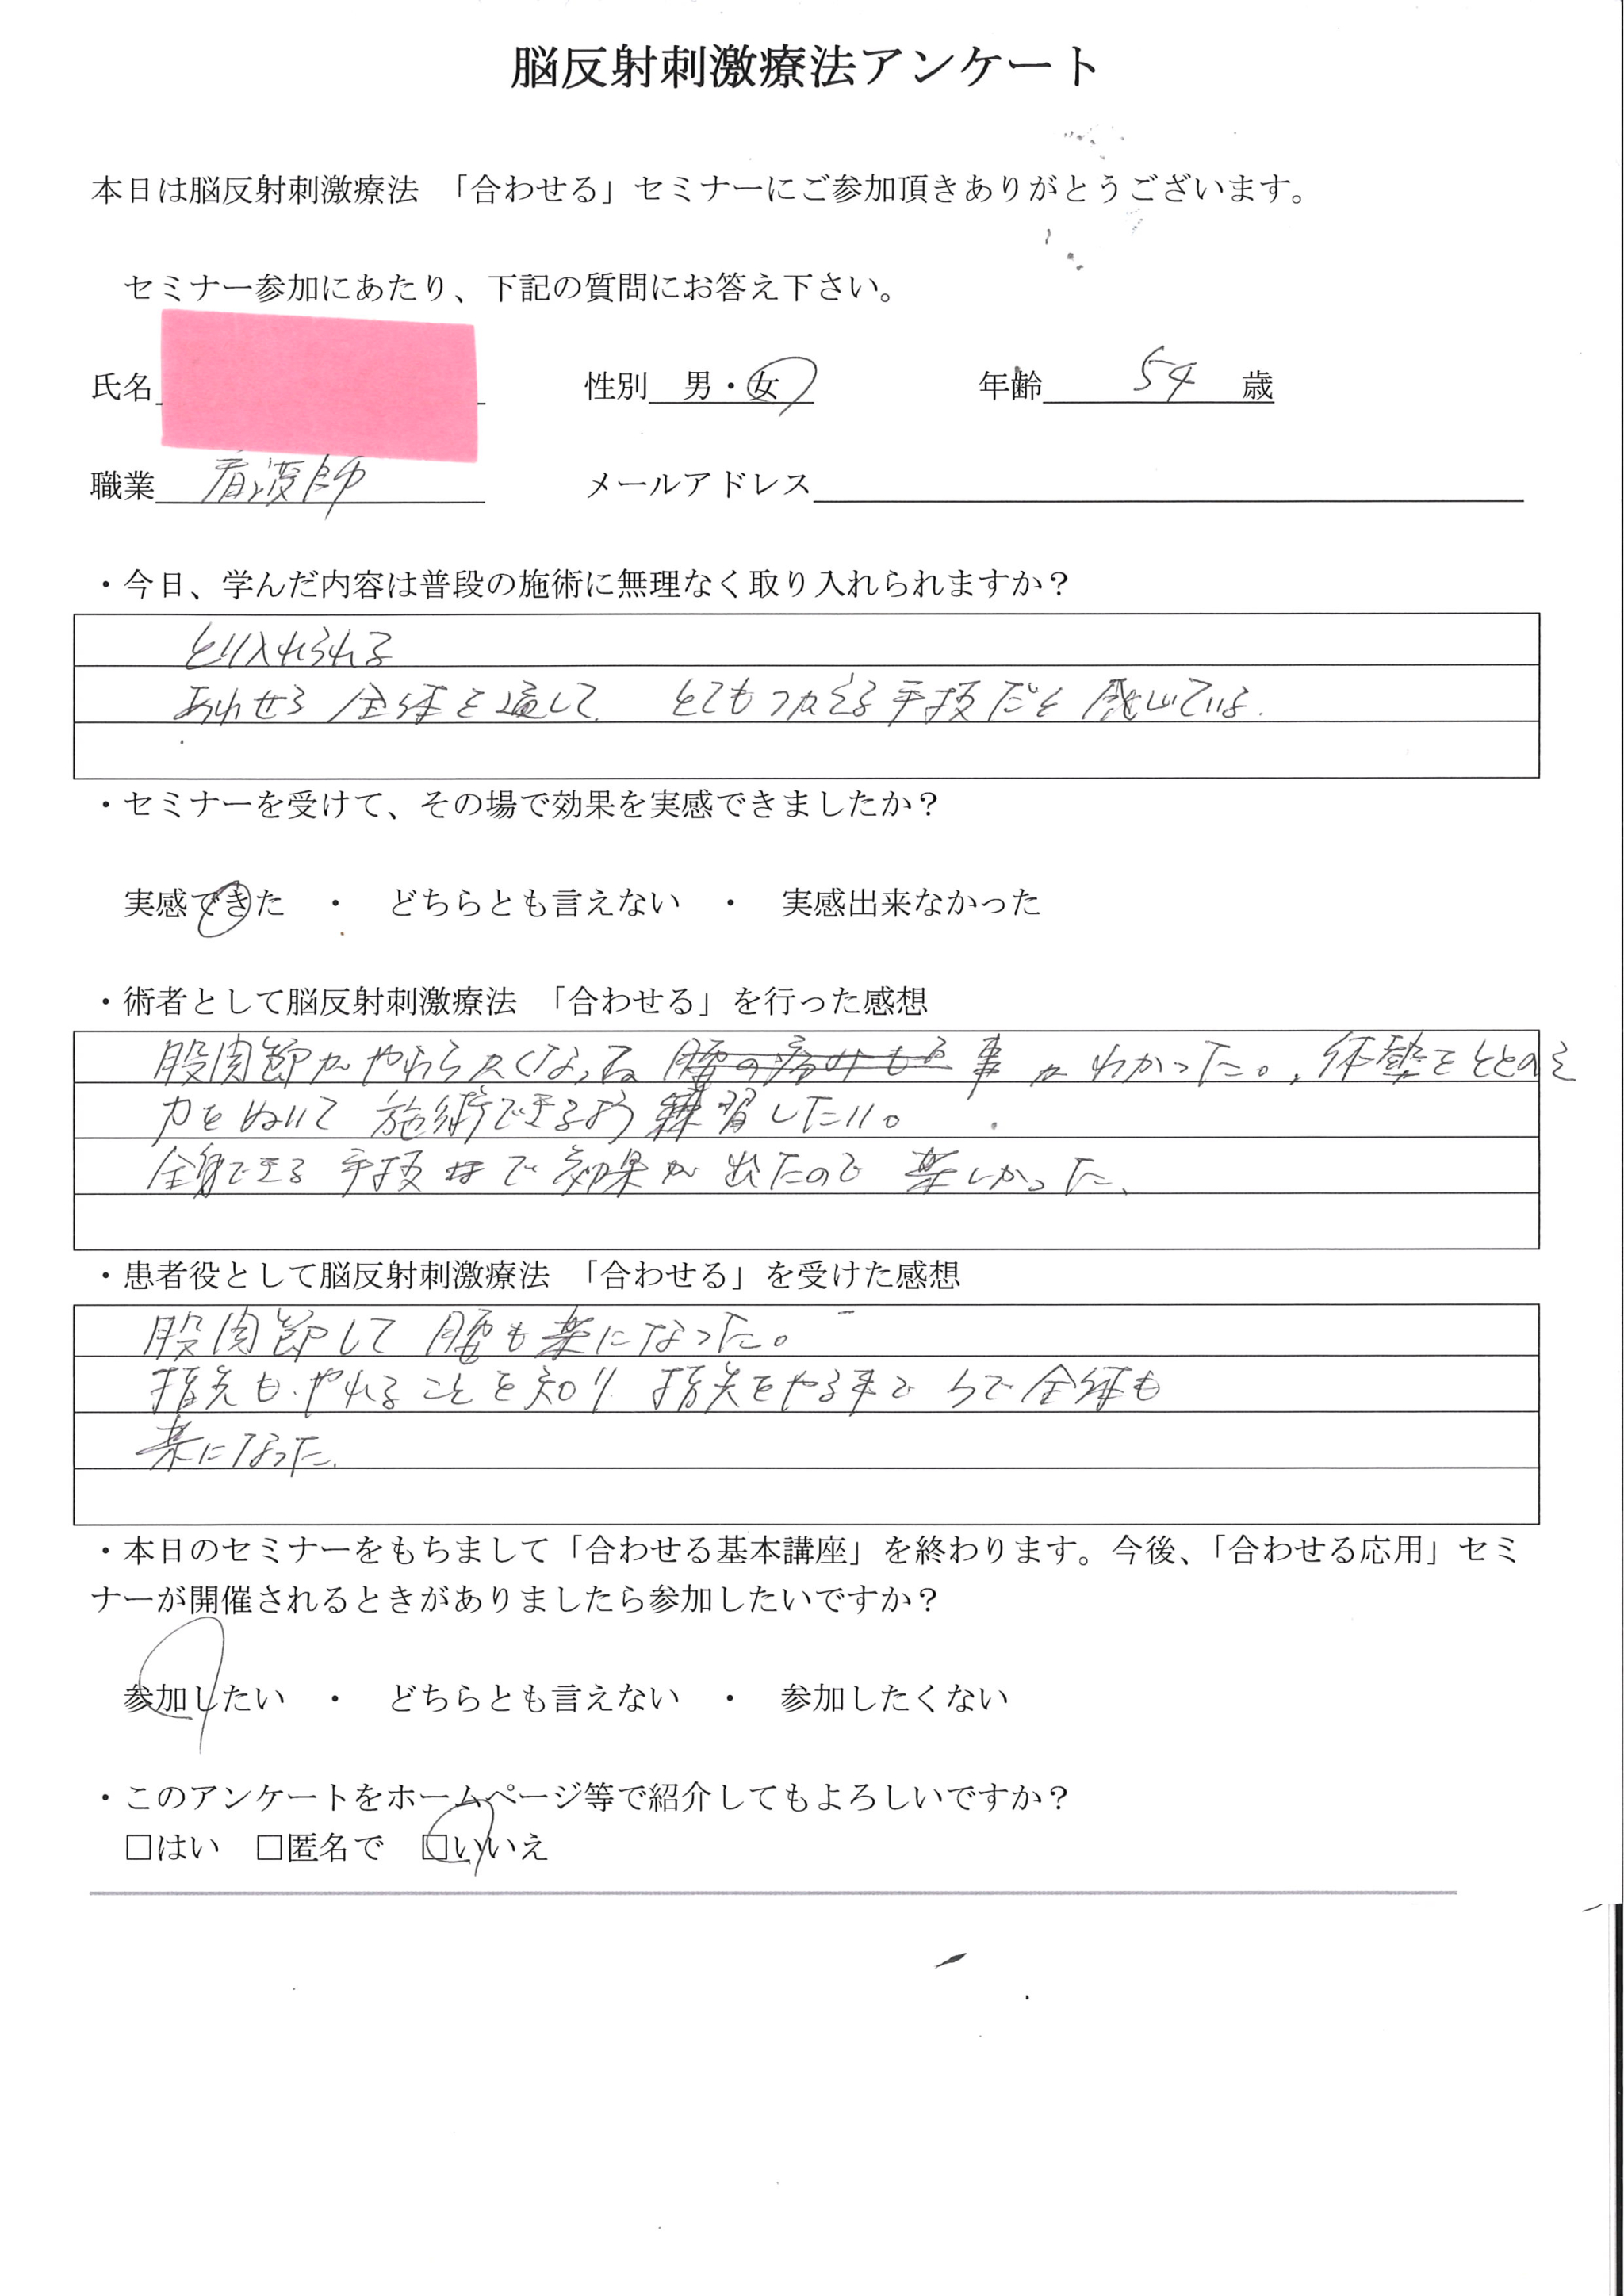 脳反射刺激療法アンケート
本日は脳反射刺激療法 「合わせる」セミナーにご参加頂きありがとうございます。
セミナー参加にあたり、下記の質問にお答え下さい。
氏名 性別 男・女 年齢 54 歳
職業 看護師 メールアドレス
・今日、学んだ内容は普段の施術に無理なく取り入れられますか？
とり入れられる
あわせる 全体を通して とてもつかえる手技だと感じている.
・セミナーを受けて、その場で効果を実感できましたか？
実感できた ・ どちらとも言えない ・ 実感出来なかった
・術者として脳反射刺激療法 「合わせる」を行った感想
股関節がやわらかくなってる 腰の痛みも 事がわかった。体勢をととのえ
力をぬいて 施術できるよう練習したい。
全身できる 手技 で効果が出たので 楽しかった、
・患者役として脳反射刺激療法 「合わせる」を受けた感想
股関節して 腰も楽になった。
指先も やれることを知り 指先をやる事で 全体も
楽になった.
・本日のセミナーをもちまして「合わせる基本講座」を終わります。今後、「合わせる応用」セミ
ナーが開催されるときがありましたら参加したいですか？
参加したい ・ どちらとも言えない ・ 参加したくない
・このアンケートをホームページ等で紹介してもよろしいですか？
□はい □匿名で □いいえ